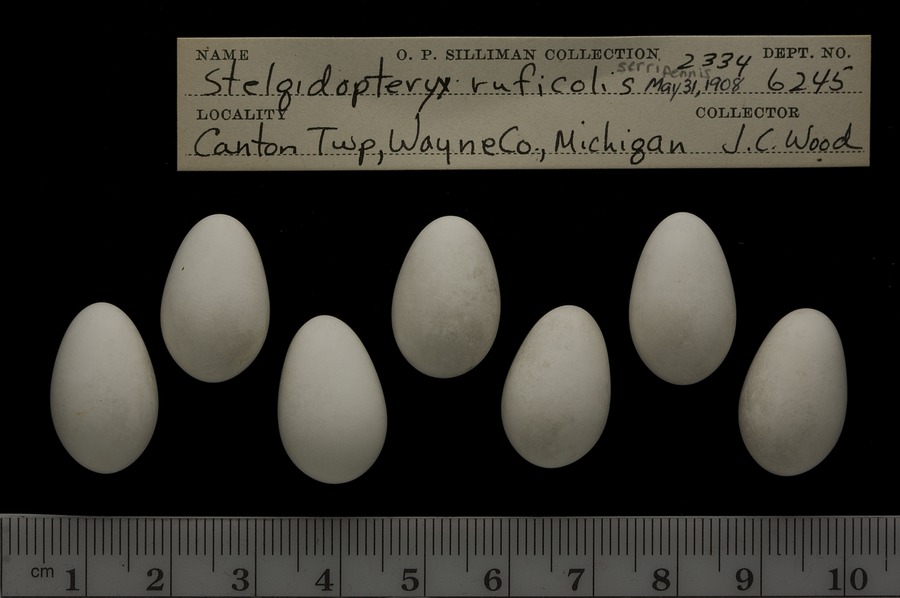 NAME O. P. SILLIMAN COLLECTION 2334 DEPT. NO.
Stelgidopteryx ruficolis serripennis May 31, 1908 6245
LOCALITY COLLECTOR
Canton Twp, Wayne Co., Michigan J. C. Wood
cm 1 2 3 4 5 6 7 8 9 10